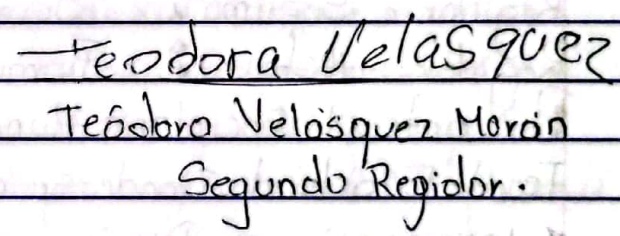 Teodora Velasquez
Teódora Velásquez Morán
Segundo Regidor.